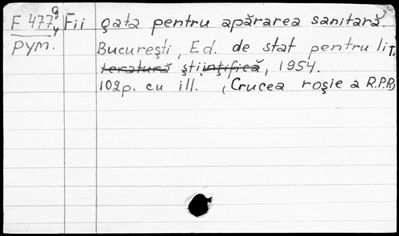 F 477 Fii gata pentru apărarea sanitară.
рум. București, Ed. de stat pentru lit.
literatură științifică, 1954.
102p. cu ill. (Crucea roșie a R.P.R)